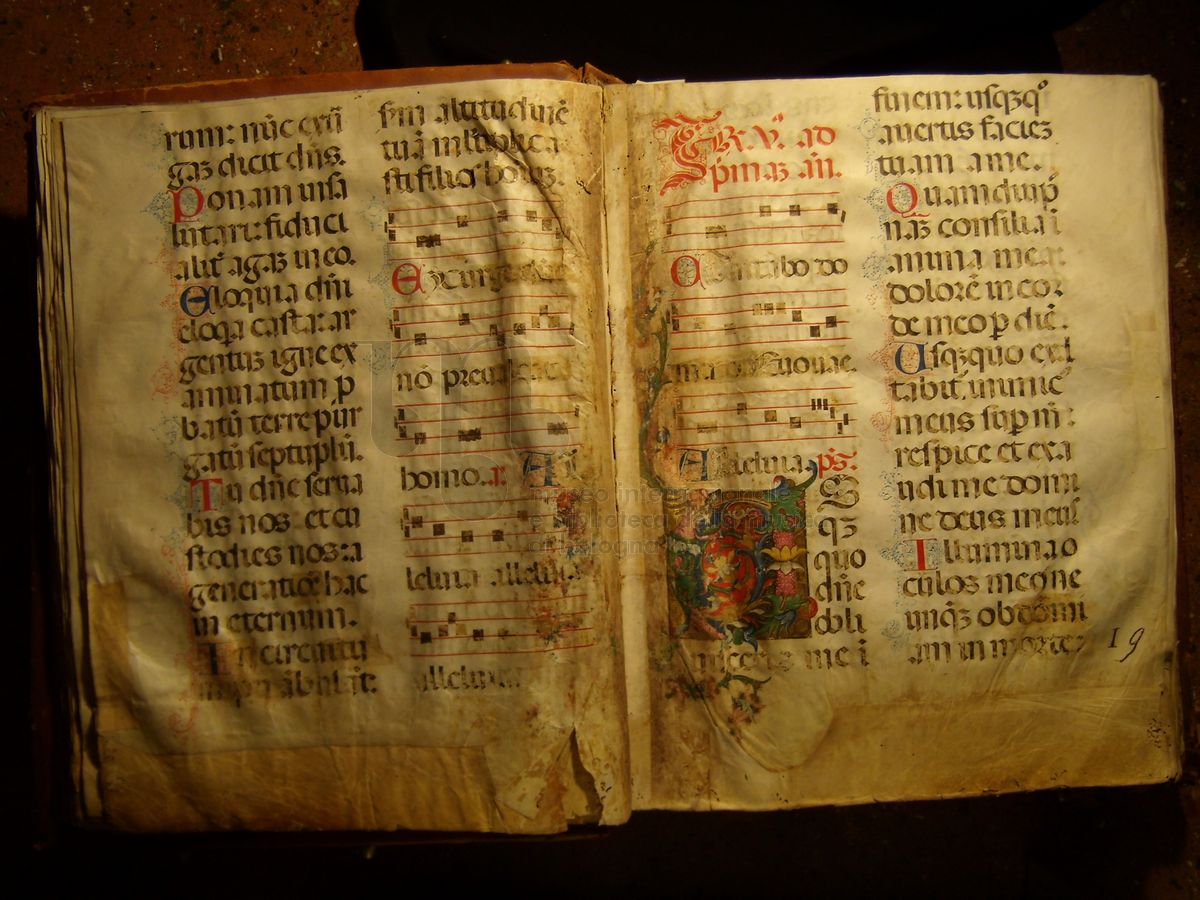 rum: nūc exū
gaꝫ dicit dñs.
Ponam in sa
lutari: fiduci
alit̄ agaꝫ in eo.
Eloquia dñi
eloq̄a casta: ar
gentuꝫ igne ex
aminatum p
batū terre pur
gatū septuplū.
Tu dñe serua
bis nos: et cu
stodies nos: a
generatiōe hac
in eternum.
In circuitu
impii ābulāt:
sm altitudinē
tuā mltiplica
sti filios hoīuꝫ.
Exurge dñe
nō preualeat
homo. Al
leluia alleluia
alleluia.
FR. V. ad
pmaꝫ añ.
Cantabo do
mino. Euouae.
Alleluia. ps.
Us
qꝫ
quo
dñe
obli
uisceris me i
finem: usqꝫ qº
auertis facieꝫ
tuam a me.
Quamdiu pō
naꝫ consilia ī
anima mea:
dolorē in cor
de meo p diē.
Usqꝫquo exal
tabit inimic
meus sup m:
respice et exa
udi me domi
ne deus meus
Illumina o
culos meos ne
unqꝫ obdormi
am in morte:
19
museo internazionale
e biblioteca della musica
di bologna